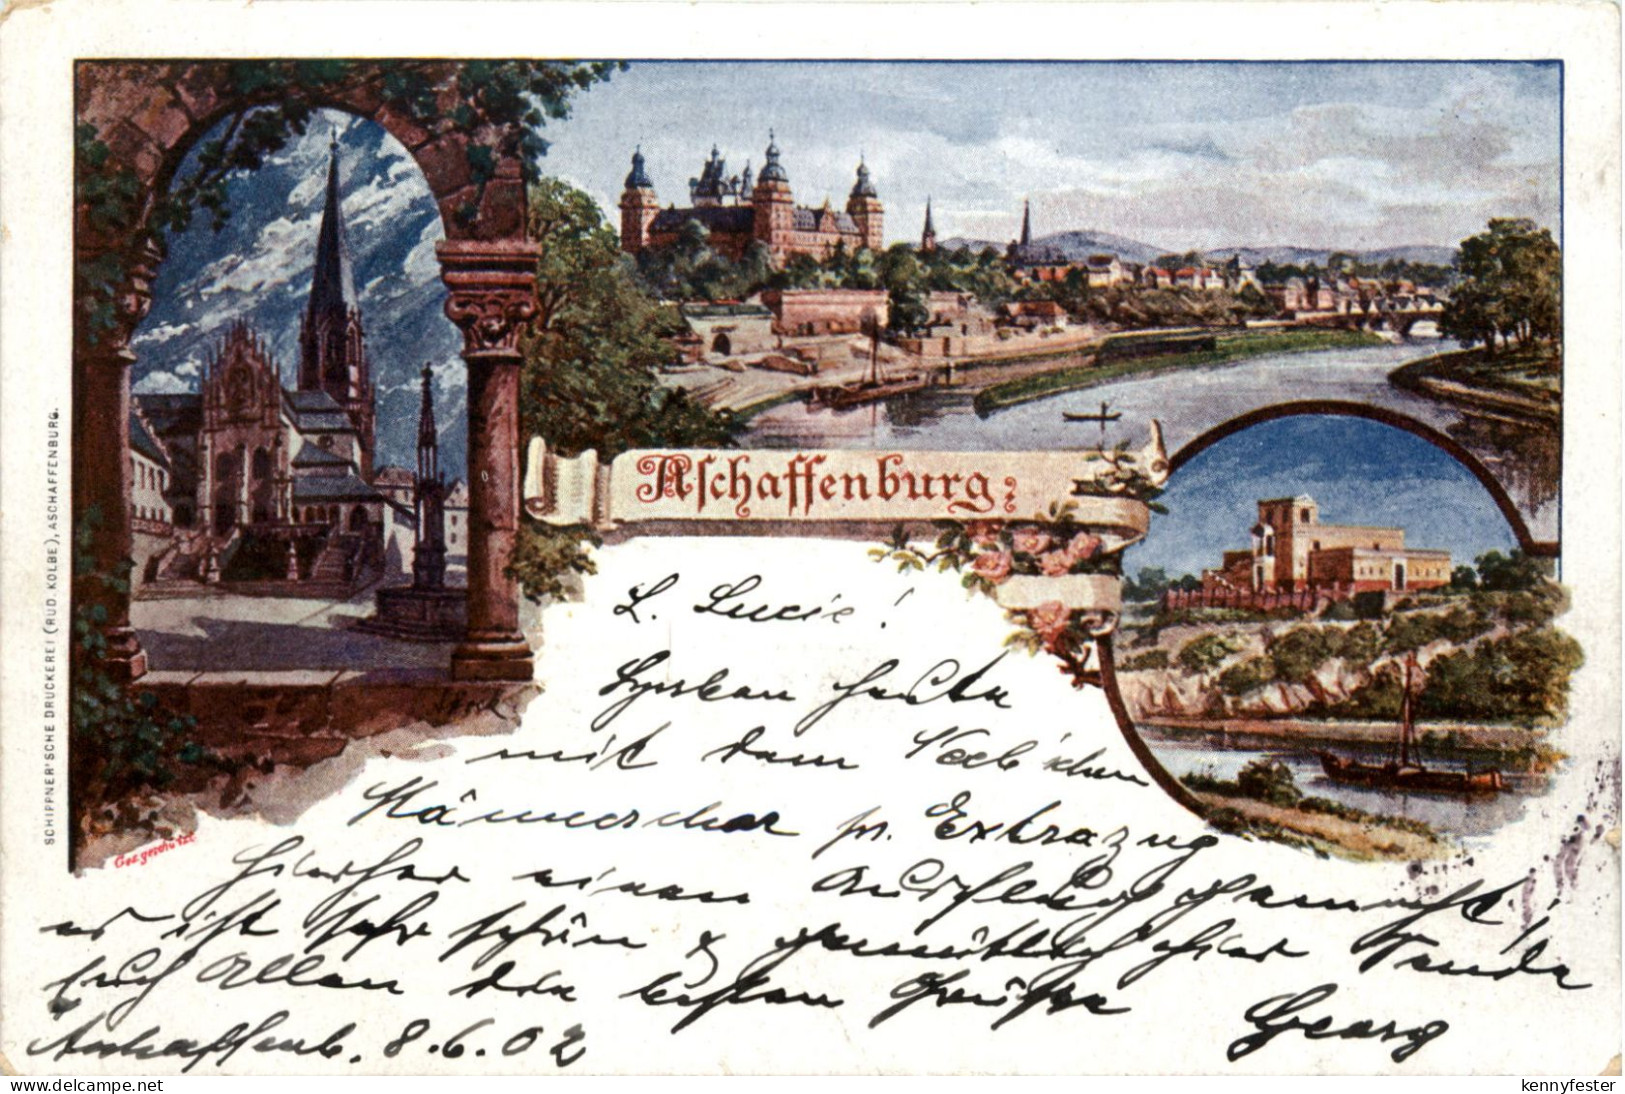 Aschaffenburg.
SCHIPPNER'SCHE DRUCKEREI (RUD. KOLBE), ASCHAFFENBURG.
Ges. geschützt
L. Lucie!
haben heute
mit dem Veeb'schen
Männerchor pr. Extrazug
hierher einen Ausflug gemacht!
es ist sehr schön & gemütlich hier Sende
Euch Allen die besten Grüsse Georg
Aschaffenb. 8.6.02
www.delcampe.net
kennyfester